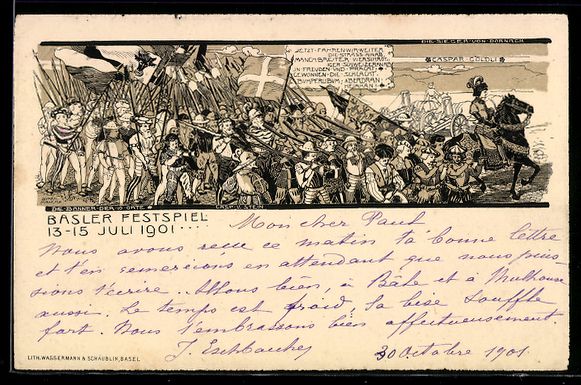 DIE SIEGER VON DORNACH
JETZT FAHREN WIR WEITER
DIE STRASS HINAB
MANCH BREITER WERSCHROT
DER SCHWEIZERMANN
IN FREUDEN UND PRACHT
GEWONNEN DIE SCHLACHT
BUMPERLIBUM, ABERDRAN
HEIAHAN!
CASPAR GÖLDLI
DIE BANNER DER 10 ORTE
BASLER FESTSPIEL
13-15 JULI 1901
Mon cher Paul
Nous avons reçu ce matin ta bonne lettre
et t'en remercions en attendant que nous puis-
sions t'écrire. Allons bien, à Bâle et à Mulhouse
aussi. Le temps est froid, la bise souffle
fort. Nous t'embrassons bien affectueusement.
30 Octobre 1901.
LITH. WASSERMANN & SCHÄUBLIN, BASEL